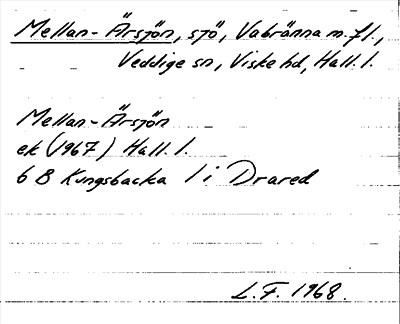 Mellan-Ärsjön, sjö, Vabränna m.fl.,
Veddige sn, Viske hd, Hall. l.
Mellan-Ärsjön
ek (1967) Hall. l.
6 B Kungsbacka 1 i Drared
L.F. 1968.